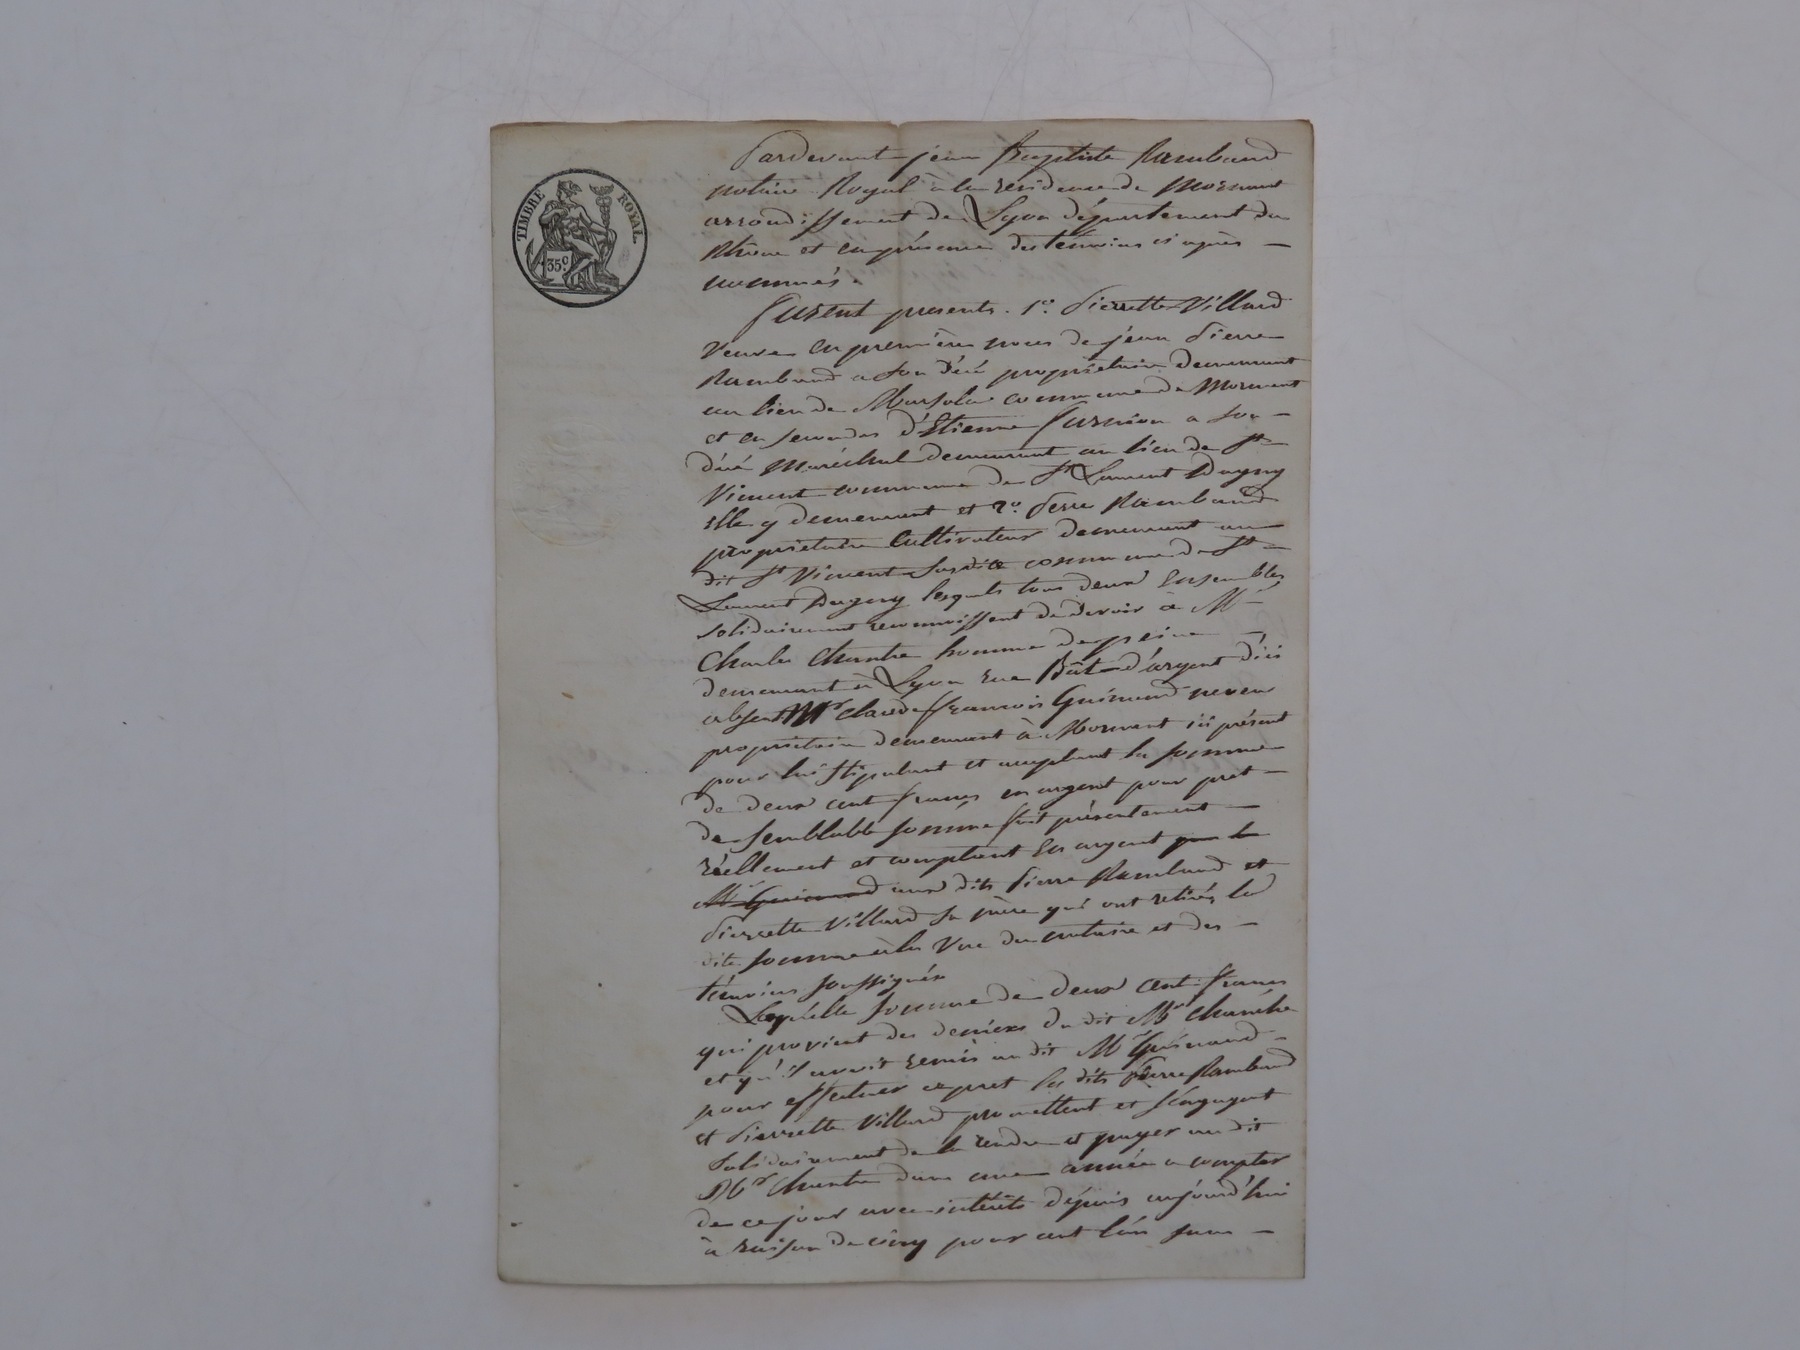 TIMBRE ROYAL
35 c.
Pardevant jean Baptiste Rambaud
notaire Royal à la residence de Mornant
arrondissement de Lyon département du
Rhône et en présence des témoins ci après
nommés.
Furent presents. 1º. Pierrette Villard
Veuve en premières noces de jean Pierre
Rambaud a son décé propriétaire demeurant
au lieu de commune de Mornant
et en secondes d'Etienne Furnion a son
décé maréchal demeurant au lieu de St
Vincent commune de St Laurent Dagny
elle y demeurant et 2º. Pierre Rambaud
propriétaire Cultivateur demeurant au
dit St Vincent susdite commune de St
Laurent Dagny lesquels tous deux Ensembles
solidairement reconnoissent de devoir à Mr
Charles Chantre homme de peine
demeurant à Lyon rue Bât d'argent d'ici
absent Mr Claude françois Guinand neveu
propriétaire demeurant à Mornant ici présent
pour lui stipulant et acceptant la somme
de deux cent francs en argent pour pret
de semblable somme fait présentement
réellement et comptant en argent par le
Mr Guinand aux dits Pierre Rambaud et
Pierrette Villard sa mère qui ont retirés la
dite somme à la vue du notaire et des
témoins soussignés
Laquelle somme de deux cent francs
qui provient des deniers du dit Mr Chantre
et qu'il avoit remis au dit Mr Guinand
pour effectuer ce pret les dits Pierre Rambaud
et Pierrette Villard promettent et s'engagent
solidairement de la rendre et payer au dit
Mr Chantre dans une année a compter
de ce jour avec intérêts dépuis aujourd'hui
à raison de cinq pour cent l'an sans